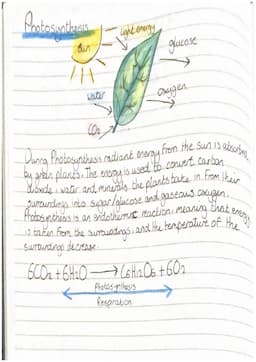 Photosynthesis
light energy
Sun
glucose
oxygen
water
CO2
During Photosynthesis radiant energy from the sun is absorbed
by green plants. The energy is used to convert carbon
dioxide, water and minerals the plants take in from their
surroundings into sugar/glucose and gaseous oxygen.
Photosynthesis is an endothermic reaction, meaning that energy
is taken from the surroundings, and the temperature of the
surroundings decrease.
6CO2 + 6H2O → C6H12O6 + 6O2
Photosynthesis
Respiration